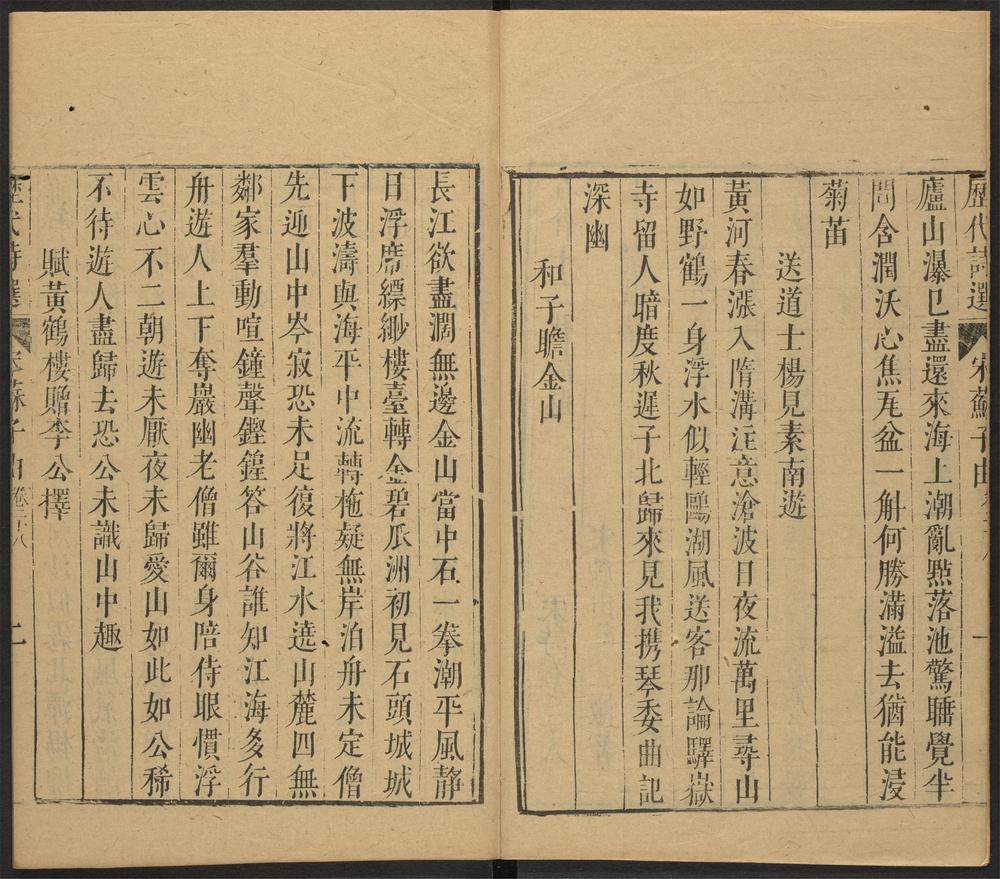 歷代詩選 宋蘇子由 卷三十八 一
廬山瀑已盡還來海上潮亂㸃落池驚聽覺半
問含潤沃心焦瓦盆一斛何勝滿溢去猶能浸
菊苗
送道士楊見素南遊
黃河春漲入隋溝注意滄波日夜流萬里尋山
如野鶴一身浮水似輕鷗湖風送客那論驛嶽
寺留人暗度秋遲子北歸來見我携琴委曲記
深幽
和子瞻金山
長江欲盡濶無邊金山當中石一拳潮平風靜
日浮席縹緲樓臺轉金碧瓜洲初見石頭城城
下波濤與海平中流轉柂疑無岸泊舟未定僧
先迎山中岑寂恐未足復將江水遶山麓四無
鄰家羣動喧鐘聲鏗鍠答山谷誰知江海多行
舟遊人上下奪巖幽老僧雖爾身陪侍眼慣浮
雲心不二朝遊未厭夜未歸愛山如此如公稀
不待遊人盡歸去恐公未識山中趣
賦黃鶴樓贈李公擇
歷代詩選 宋蘇子由 卷三十八 二